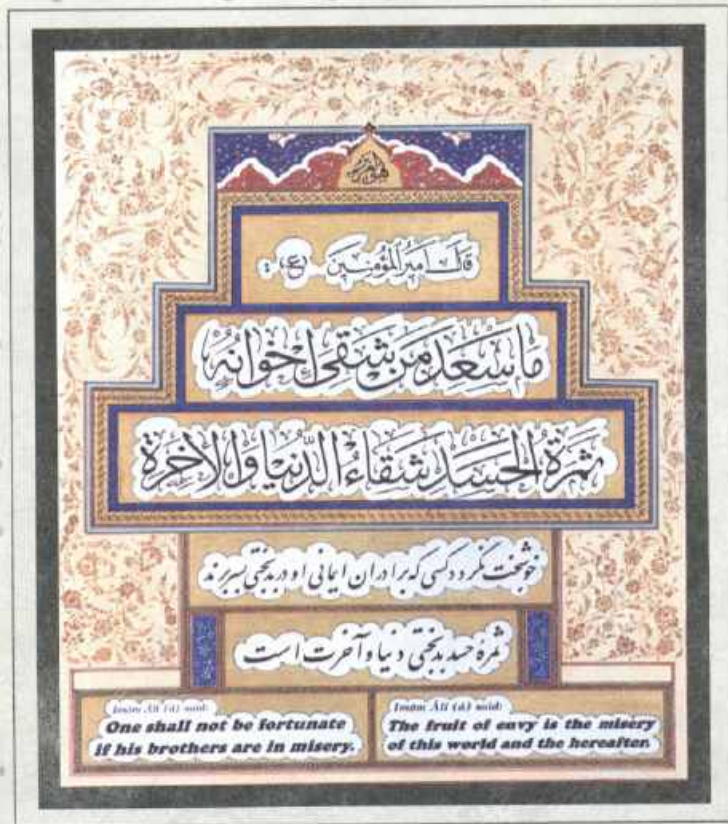 قال امیر المؤمنین (ع) :
ما سَعَدَ مَن شَقِیَ اِخوانُهُ
ثَمَرَةُ الحَسَدِ شَقاءُ الدُّنیا وَالاخِرَةِ
خوشبخت نگردد کسی که برادران ایمانی او در بدبختی بسر برند
ثمرهٔ حسد بدبختی دنیا و آخرت است
Imām Ālī (a) said:
One shall not be fortunate
if his brothers are in misery.
Imām Ālī (a) said:
The fruit of envy is the misery
of this world and the hereafter.